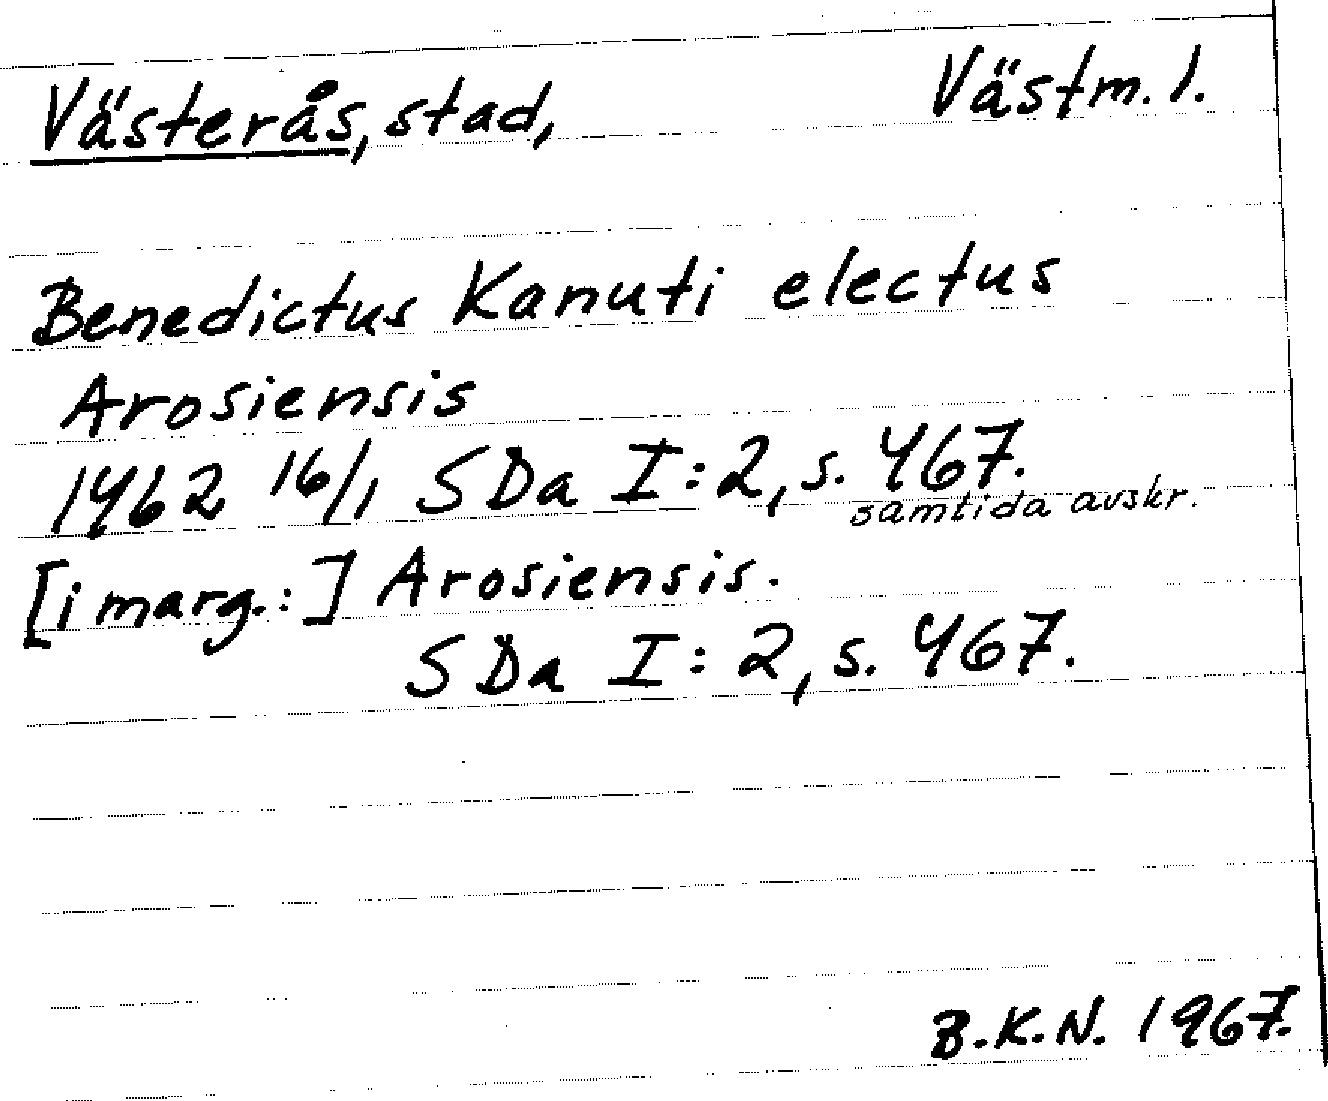 Västerås, stad, Västm. l.
Benedictus Kanuti electus
Arosiensis
1462 16/1 SDa I:2, s. 467.
samtida avskr.
[i marg.:] Arosiensis.
SDa I: 2, s. 467.
B.K.N. 1967.